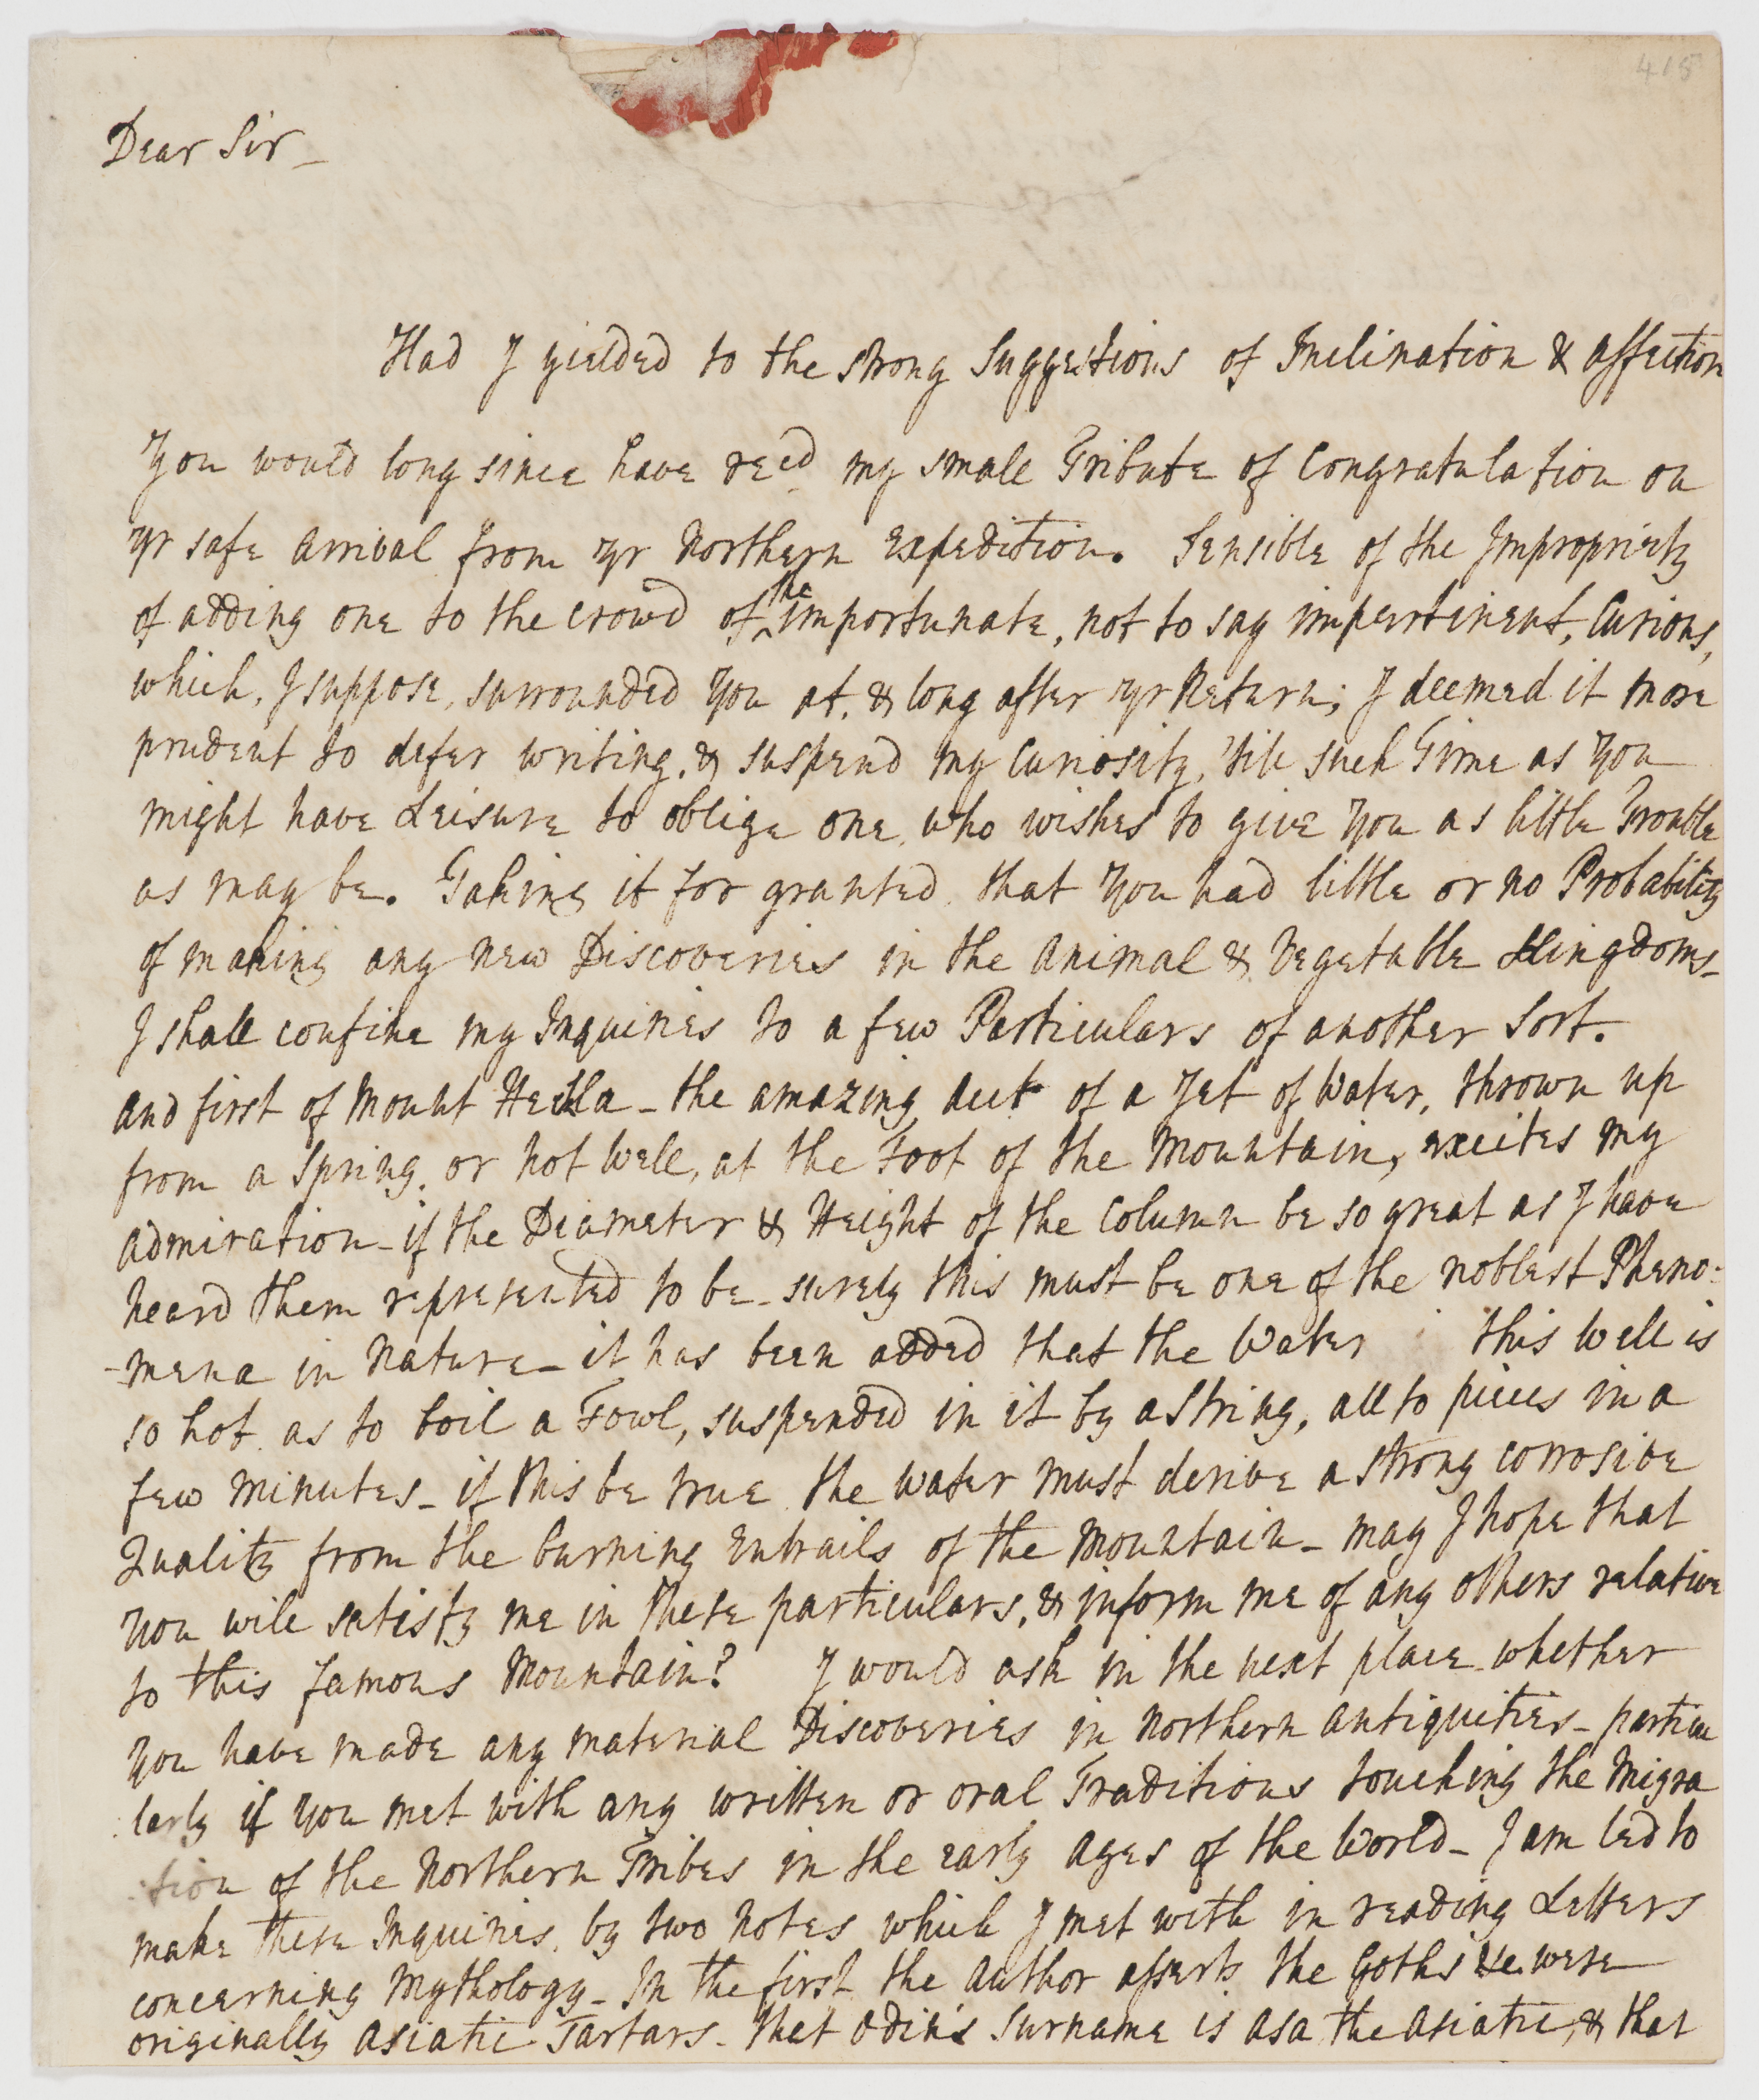 418
Dear Sir_
Had I yielded to the strong Suggestions of Inclination & affection
You would long since have recd my small Tribute of Congratulation on
yr safe arrival from yr Northern Expedition. Sensible of the Impropriety
of adding one to the crowd of the importunate, not to say impertinent, Curious,
which, I suppose, surrounded You at, & long after yr Return; I deemed it more
prudent to defer writing, & suspend my Curiosity, 'till such Time as You
might have Leisure to oblige one, who wishes to give You as little Trouble
as may be. Taking it for granted, that You had little or no Probability
of making any new Discoveries in the Animal & Vegetable Kingdoms_
I shall confine my Inquiries to a few Particulars of another Sort.
And first of Mount Heckla_the amazing of a Jet of Water, thrown up
from a Spring, or hot Well, at the Foot of the Mountain, excites my
admiration_if the Diameter & Height of the Column be so great as I have
heard them represented to be_surely this must be one of the noblest Pheno:
-mena in Nature_it has been added that the Water this Well is
so hot, as to boil a Fowl, suspended in it by a String, all to pieces in a
few Minutes_if this be true, the Water must derive a strong corrosive
Quality from the burning Entrails of the Mountain_may I hope that
you will satisfy me in these particulars, & inform me of any others relative
to this famous Mountain? I would ask in the next place, whether
you have made any material Discoveries in Northern Antiquities_particu
:larly if you met with any written or oral Traditions touching the Migra
:tion of the Northern Tribes in the early ages of the World_I am led to
make these Inquiries, by two Notes which I met with in reading Letters
concerning Mythology_In the first, the Author asserts the Goths &c. were
originally Asiatic Tartars_that Odin's Surname is Asa the Asiatic, & that